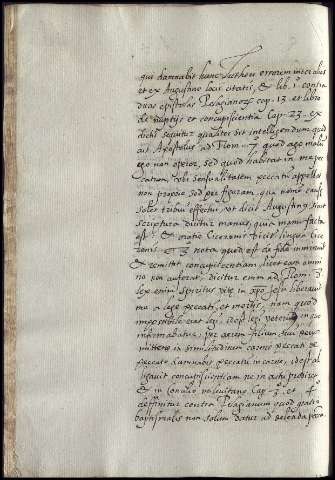 qui damnabit hunc Lutheri errorem inter alios
et ex Augustino locis citatis, & lib. 1 contra
duas epistolas Pelagianorum cap. 13 et libro
de nuptiis et concupiscientia cap. 23. ex
dictis sequitur qualiter sit intelligendum quod
ait Apostolus ad Rom. 7 quod ago malum
ego non operor, sed quod habitat in me pec
catum, ubi sensualitatem peccatum appellat
non proprie sed per figuram, qua nomine causae
solet tribui effectui, ut dicit Augustinus sicut
scriptura dicitur manus, quia manu facta
est, & oratio Ciceronis dicitur lingua Cice
ronis. nota quod est de fide minui
& remitti concupiscentiam, licet eam omni
no non auferat. dicitur enim ad Rom. 8
lex enim spiritus vite in liberavit
me a lege peccati, et mortis, nam quod
impossibile erat legi, idest legi veteri in quo
infirmabatur, per carnem filium suum Deus
mittens in similitudinem carnis peccati de
peccato damnabit peccatum in carne, idest al
ligavit concupiscientiam ne in actu prodiret
& in concilio milevitano cap. 3 et 4
deffinitur contra Pelagianum quod gratia
baptismalis non solum datur ad delenda pecca